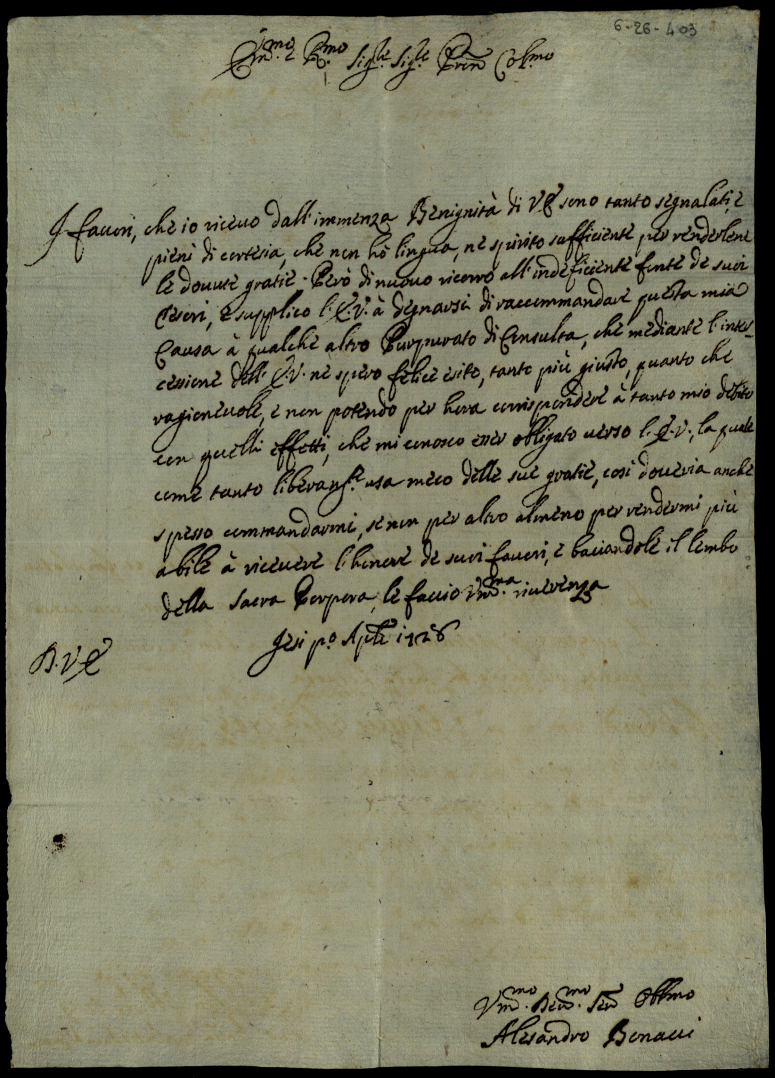 6-26-403
Em.mo e R.mo Sig.re Sig.re Pron Col.mo
I favori, che io ricevo dall'immenza Benignità di V.E. sono tanto segnalati, e
pieni di cortesia, che non hò lingua, ne spirito sufficiente per renderlene
le dovute gratie. Però di nuovo ricorro all'indeficiente fonte de suoi
Tesori, e supplico l'E.V. à degnarsi di raccommandare questa mia
Causa à qualche altro Purpurato di Consulta, che mediante l'inter-
cessione dell'E.V. ne spero felice esito, tanto più giusto, quanto che
ragionevole, e non potendo per hora corrispondere à tanto mio debito
con quelli effetti, che mi conosco esser obligato verso l'E.V., la quale
come tanto liberam.te usa meco delle sue gratie, così doveria anche
spesso commandarmi, se non per altro almeno per rendermi più
abile à ricevere l'honore de suoi favori, e baciandole il lembo
della Sacra Porpora, le faccio um.ma riverenza
Jesi p.o Aple 1726
D.V.E.
Um.mo Dev.mo Ser Obl.mo
Alesandro Bonacci